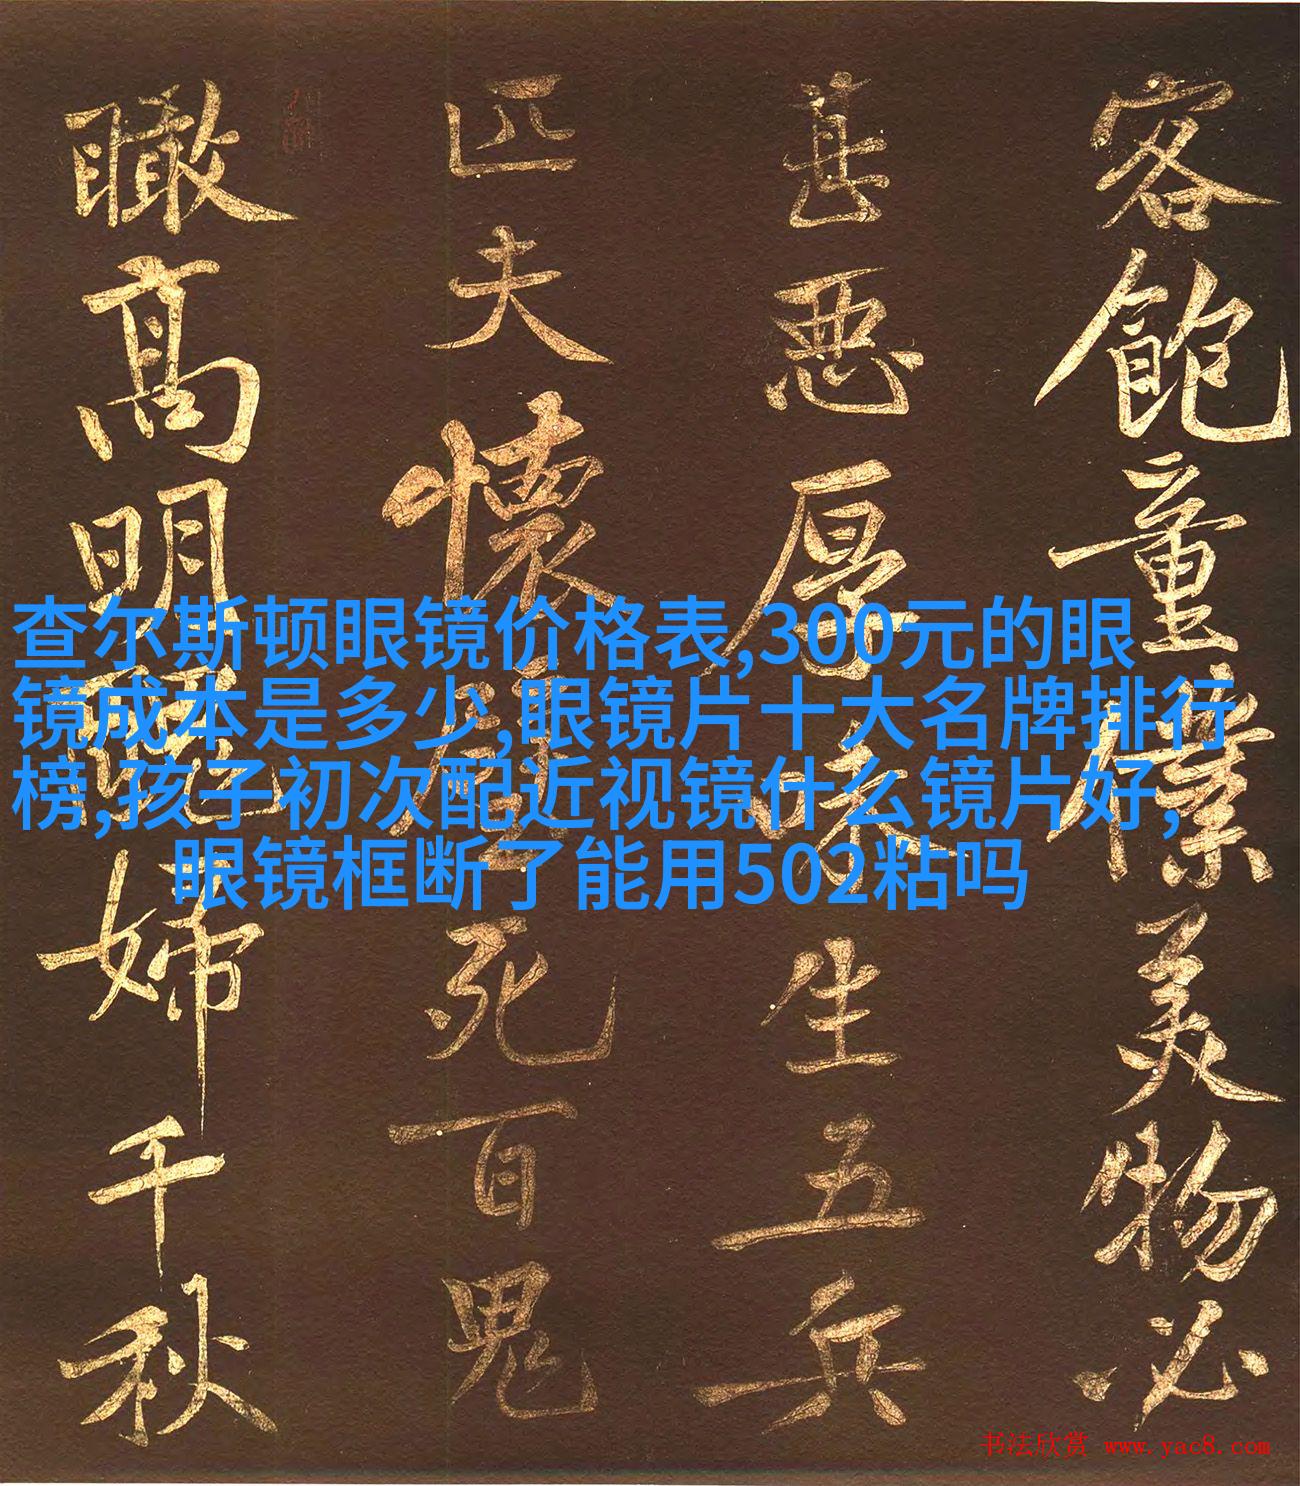 客飽童僕美物必
甚惡厚味生五兵
匹夫懷璧死百鬼
瞰高明醜婦千秋
查尔斯顿眼镜价格表,300元的眼
镜成本是多少,眼镜片十大名牌排行
榜,孩子初次配近视镜什么镜片好,
眼镜框断了能用502粘吗
书法欣赏 www.yac8.com